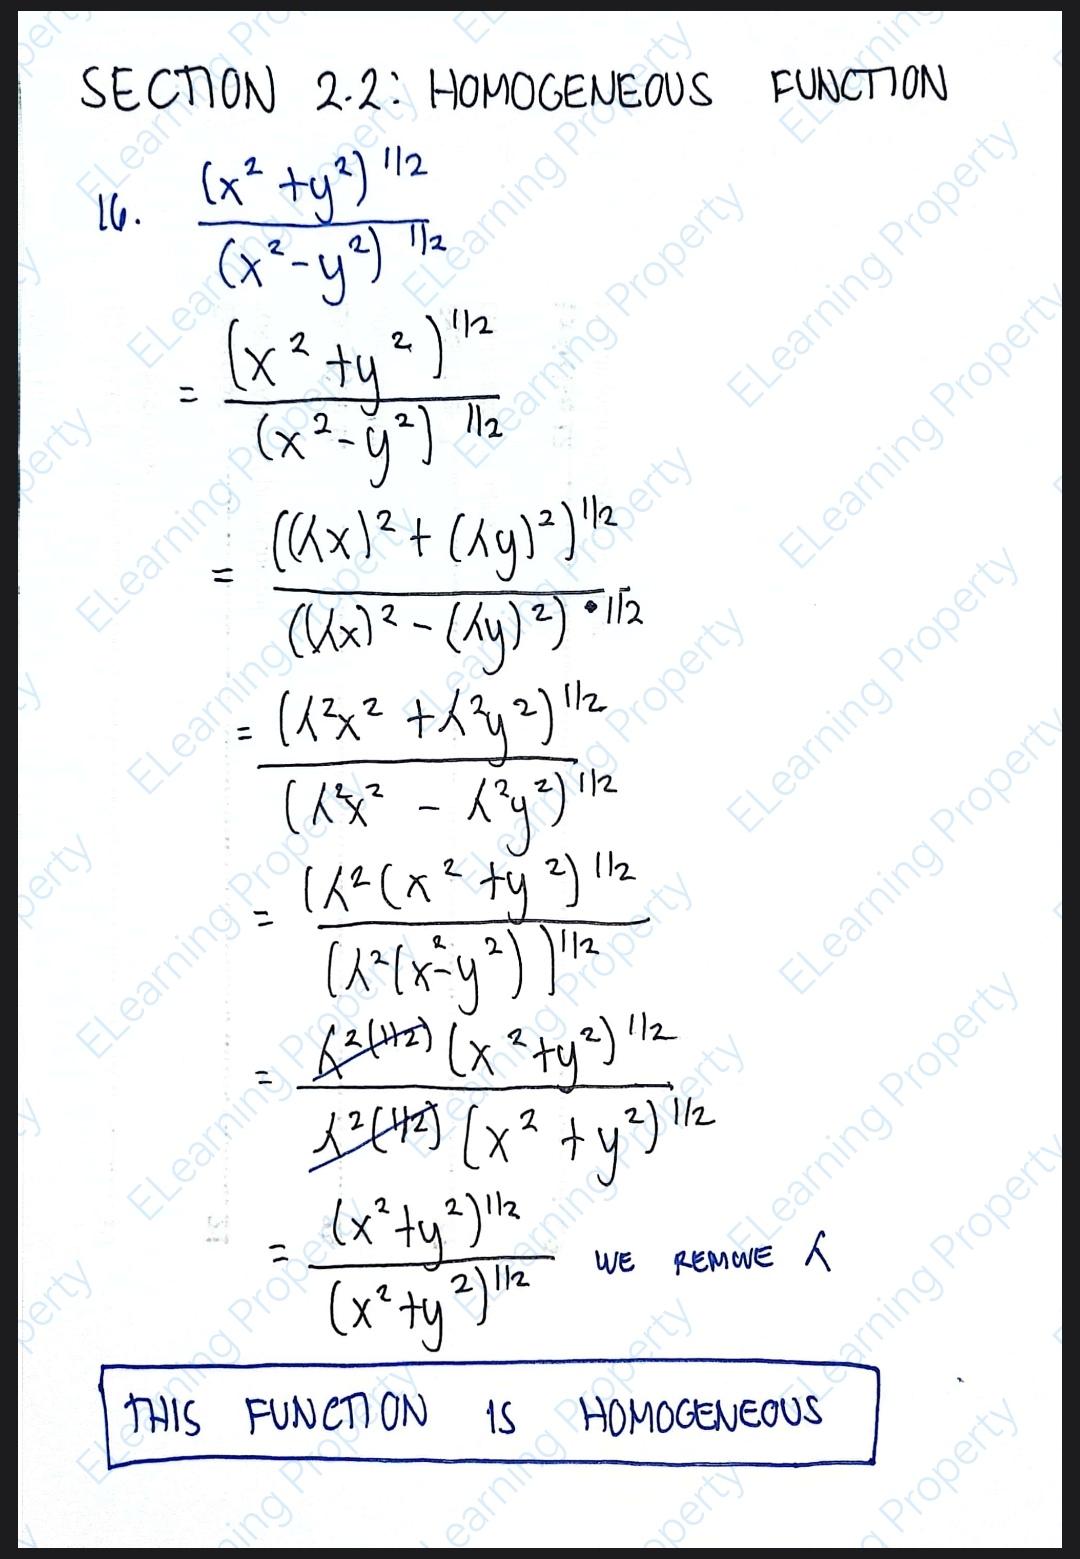 SECTION 2.2: HOMOGENEOUS FUNCTION
16. (x² + y²)^1/2 / (x² - y²)^1/2
= (x² + y²)^1/2 / (x² - y²)^1/2
= ((λx)² + (λy)²)^1/2 / ((λx)² - (λy)²)^1/2
= (λ²x² + λ²y²)^1/2 / (λ²x² - λ²y²)^1/2
= (λ²(x² + y²)^1/2 / (λ²(x² - y²))^1/2
= λ^2(1/2) (x² + y²)^1/2 / λ^2(1/2) (x² + y²)^1/2
= (x² + y²)^1/2 / (x² + y²)^1/2 WE REMOVE λ
THIS FUNCTION IS HOMOGENEOUS
ELearning Property